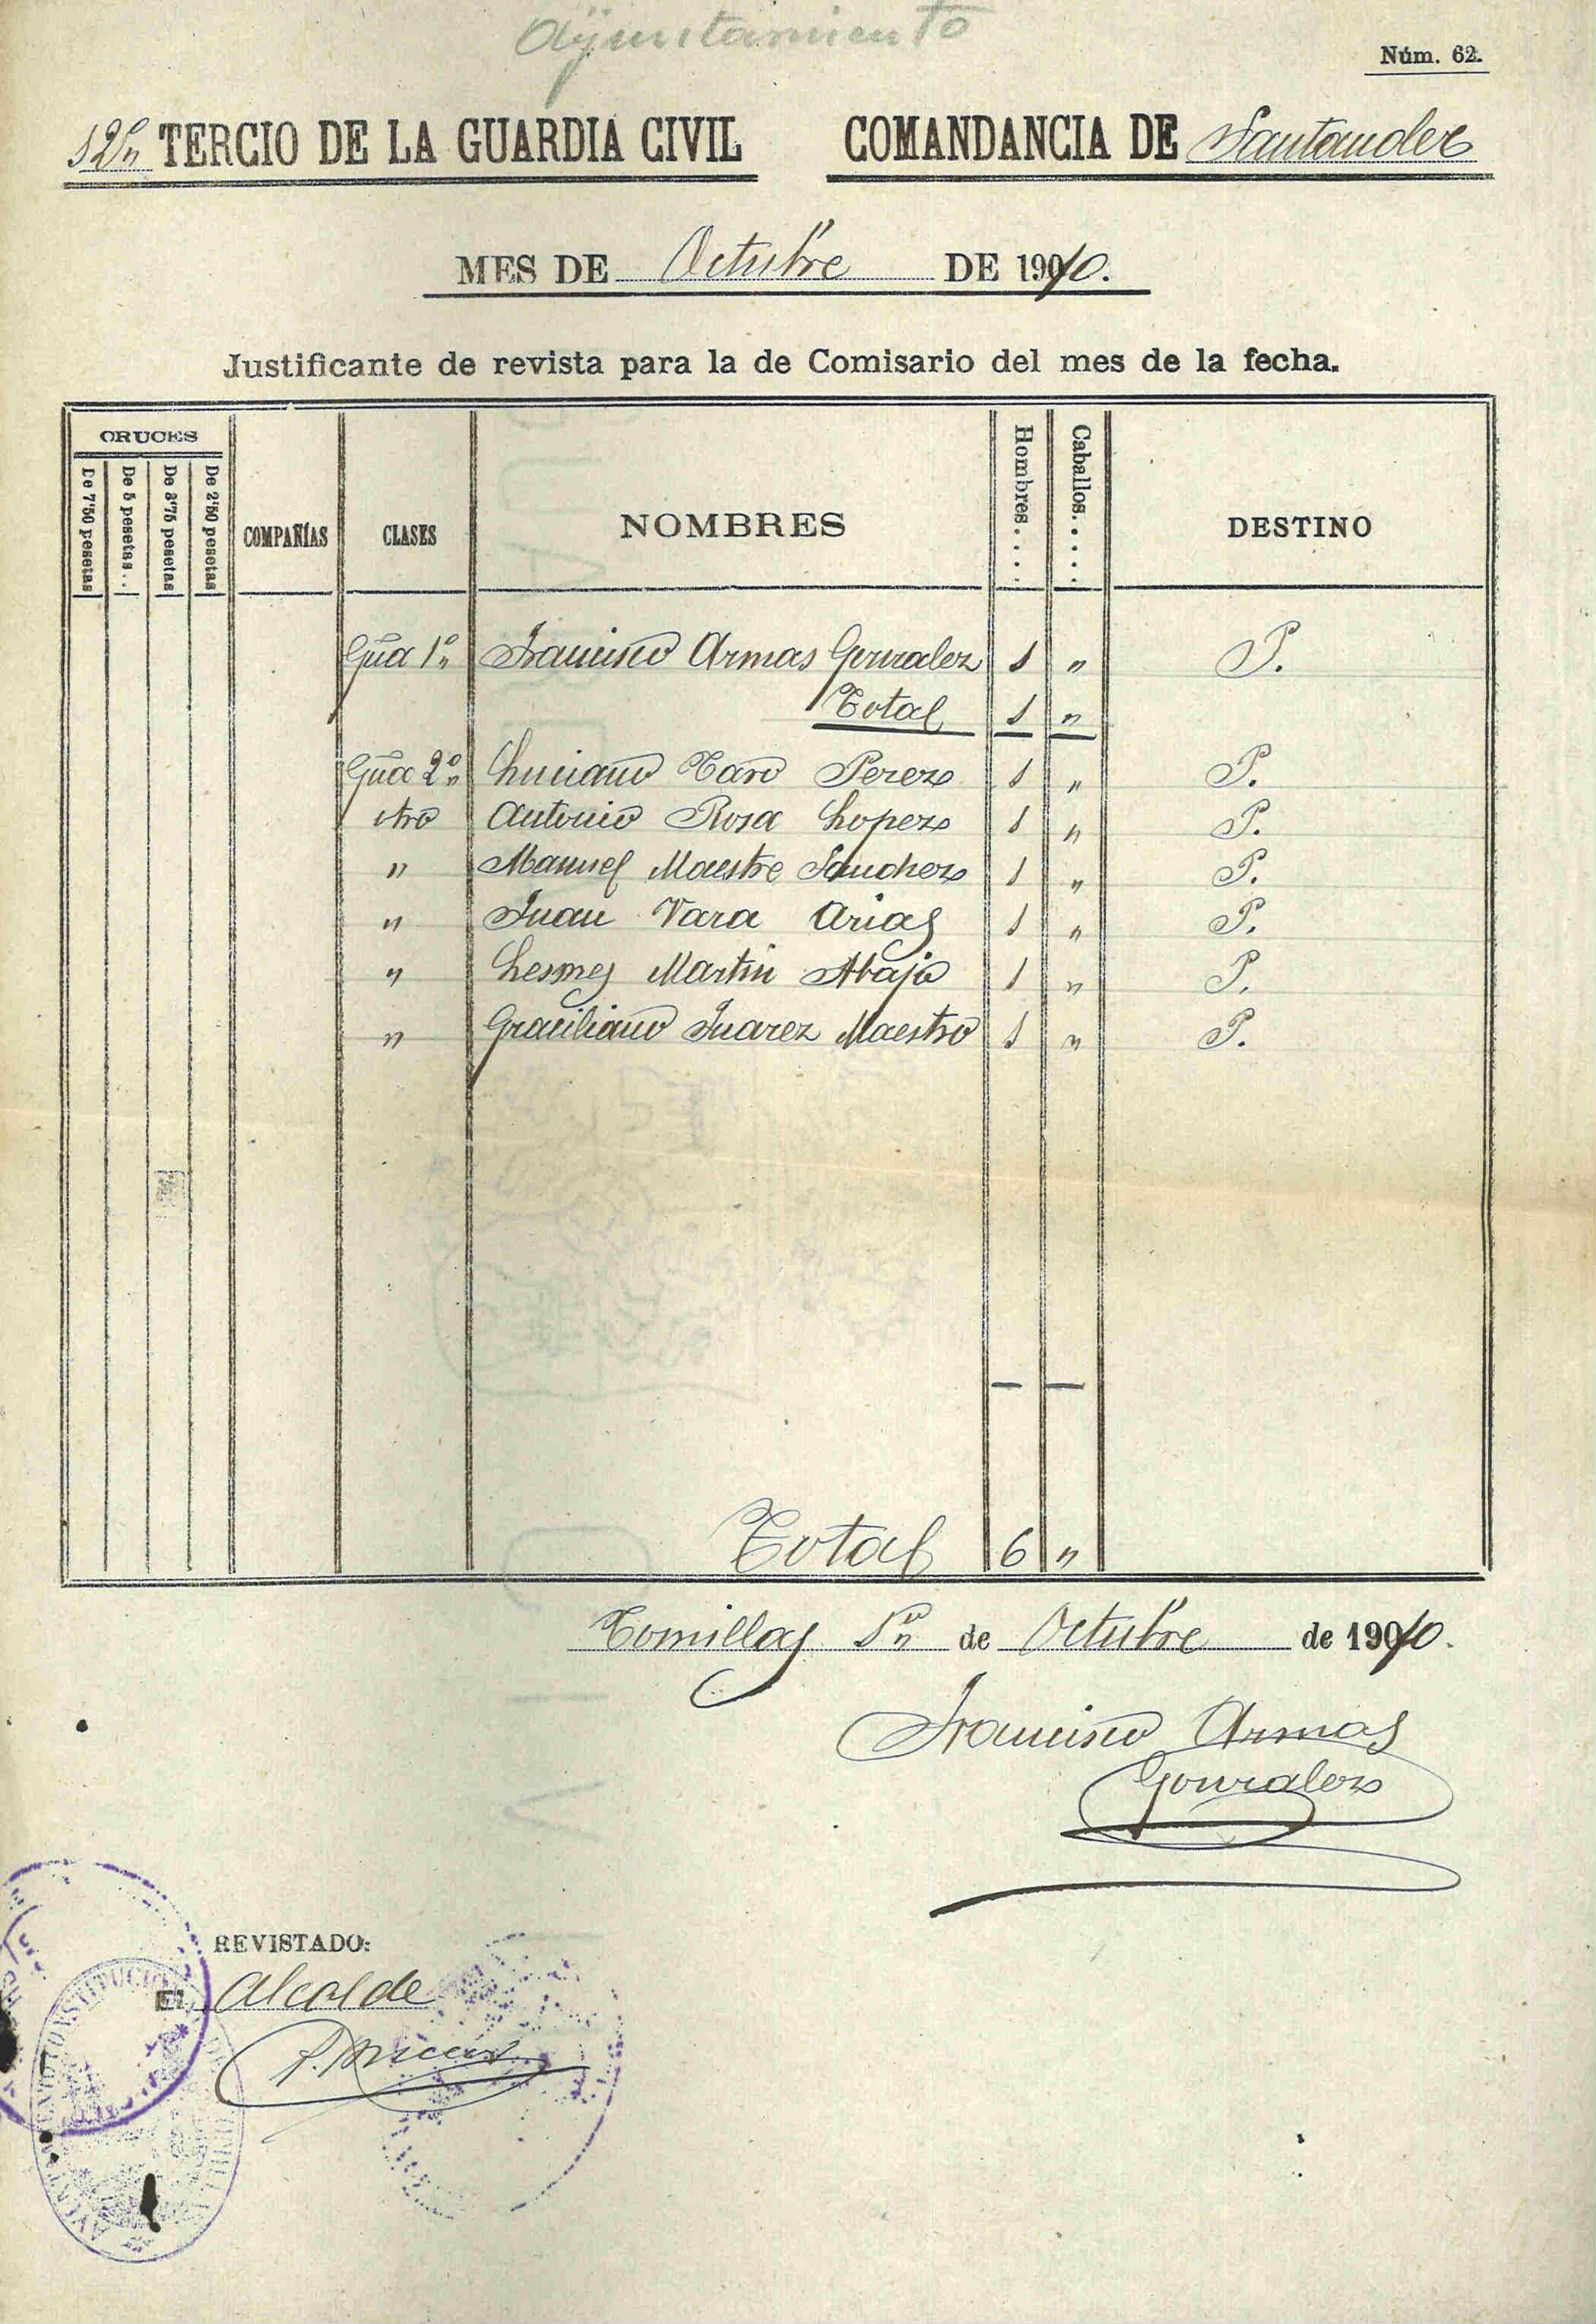 Ayuntamiento
Núm. 62.
12º TERCIO DE LA GUARDIA CIVIL COMANDANCIA DE Santander
MES DE Octubre DE 1910.
Justificante de revista para la de Comisario del mes de la fecha.
CRUCES
De 7'50 pesetas
De 5 pesetas...
De 3'75 pesetas
De 2'50 pesetas
COMPAÑÍAS
CLASES
NOMBRES
Hombres....
Caballos.....
DESTINO
Gũa 1º Francisco Armas Gonzalez 1 " P.
Total 1 "
Gũa 2º Luciano Caro Perez 1 " P.
otro Antonio Rosa Lopez 1 " P.
" Manuel Maestre Sanchez 1 " P.
" Juan Vara Arias 1 " P.
" Lesmes Martin Abajo 1 " P.
" Graciliano Juarez Maestro 1 " P.
Total 6 "
Comillas 1º de Octubre de 1910.
Francisco Armas
Gonzalez
REVISTADO:
El Alcalde